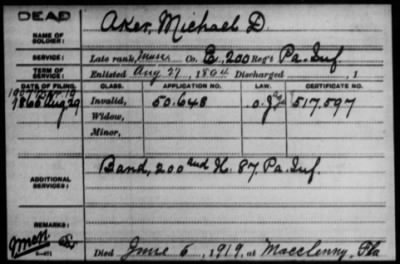 DEAD
NAME OF SOLDIER: Aker, Michael D.
SERVICE: Late rank, Co. E, 200 Reg't Pa. Inf.
TERM OF SERVICE: Enlisted Aug 27, 1864 Discharged , 1
DATE OF FILING. CLASS. APPLICATION NO. LAW. CERTIFICATE NO.
1865 Aug 29 Invalid, 50.648 517,597
Widow,
Minor,
ADDITIONAL SERVICES: Band, 200 and H. 87 Pa. Inf.
REMARKS:
Died June 5, 1919, at Macclenny, Fla